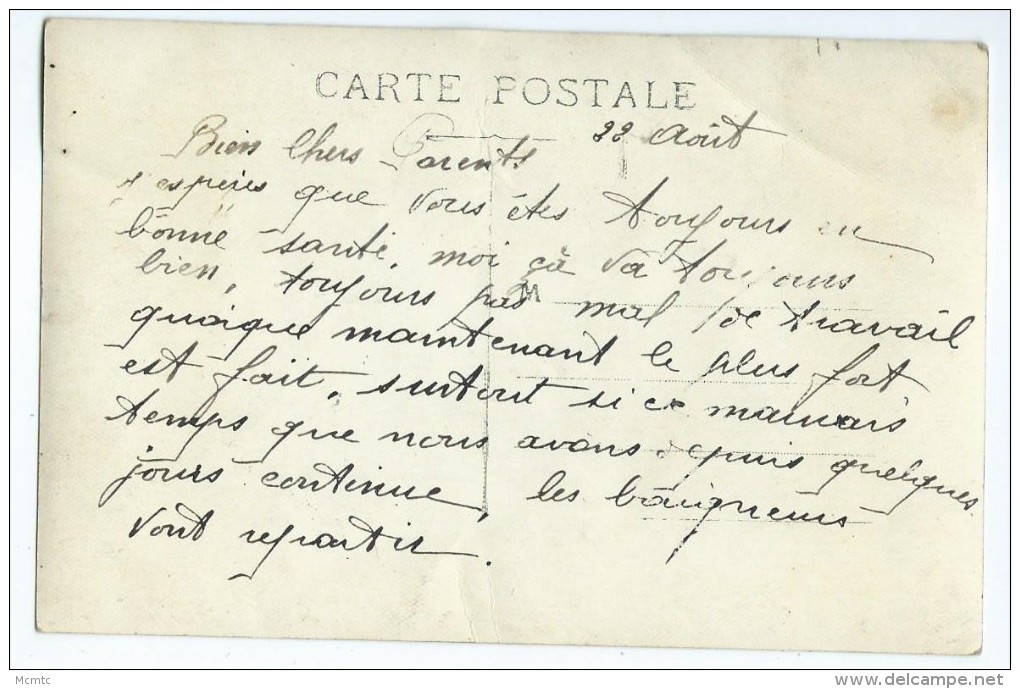 CARTE POSTALE
22 Août
Bien Chers Parents
J'espères que vous êtes toujours en
bonne santé, moi çà va toujours
bien, toujours pas mal de travail
M
quoique maintenant le plus fort
est fait, surtout si ce mauvais
temps que nous avons depuis quelques
jours continue, les baigneurs
vont repartir.
Mcmtc
www.delcampe.net